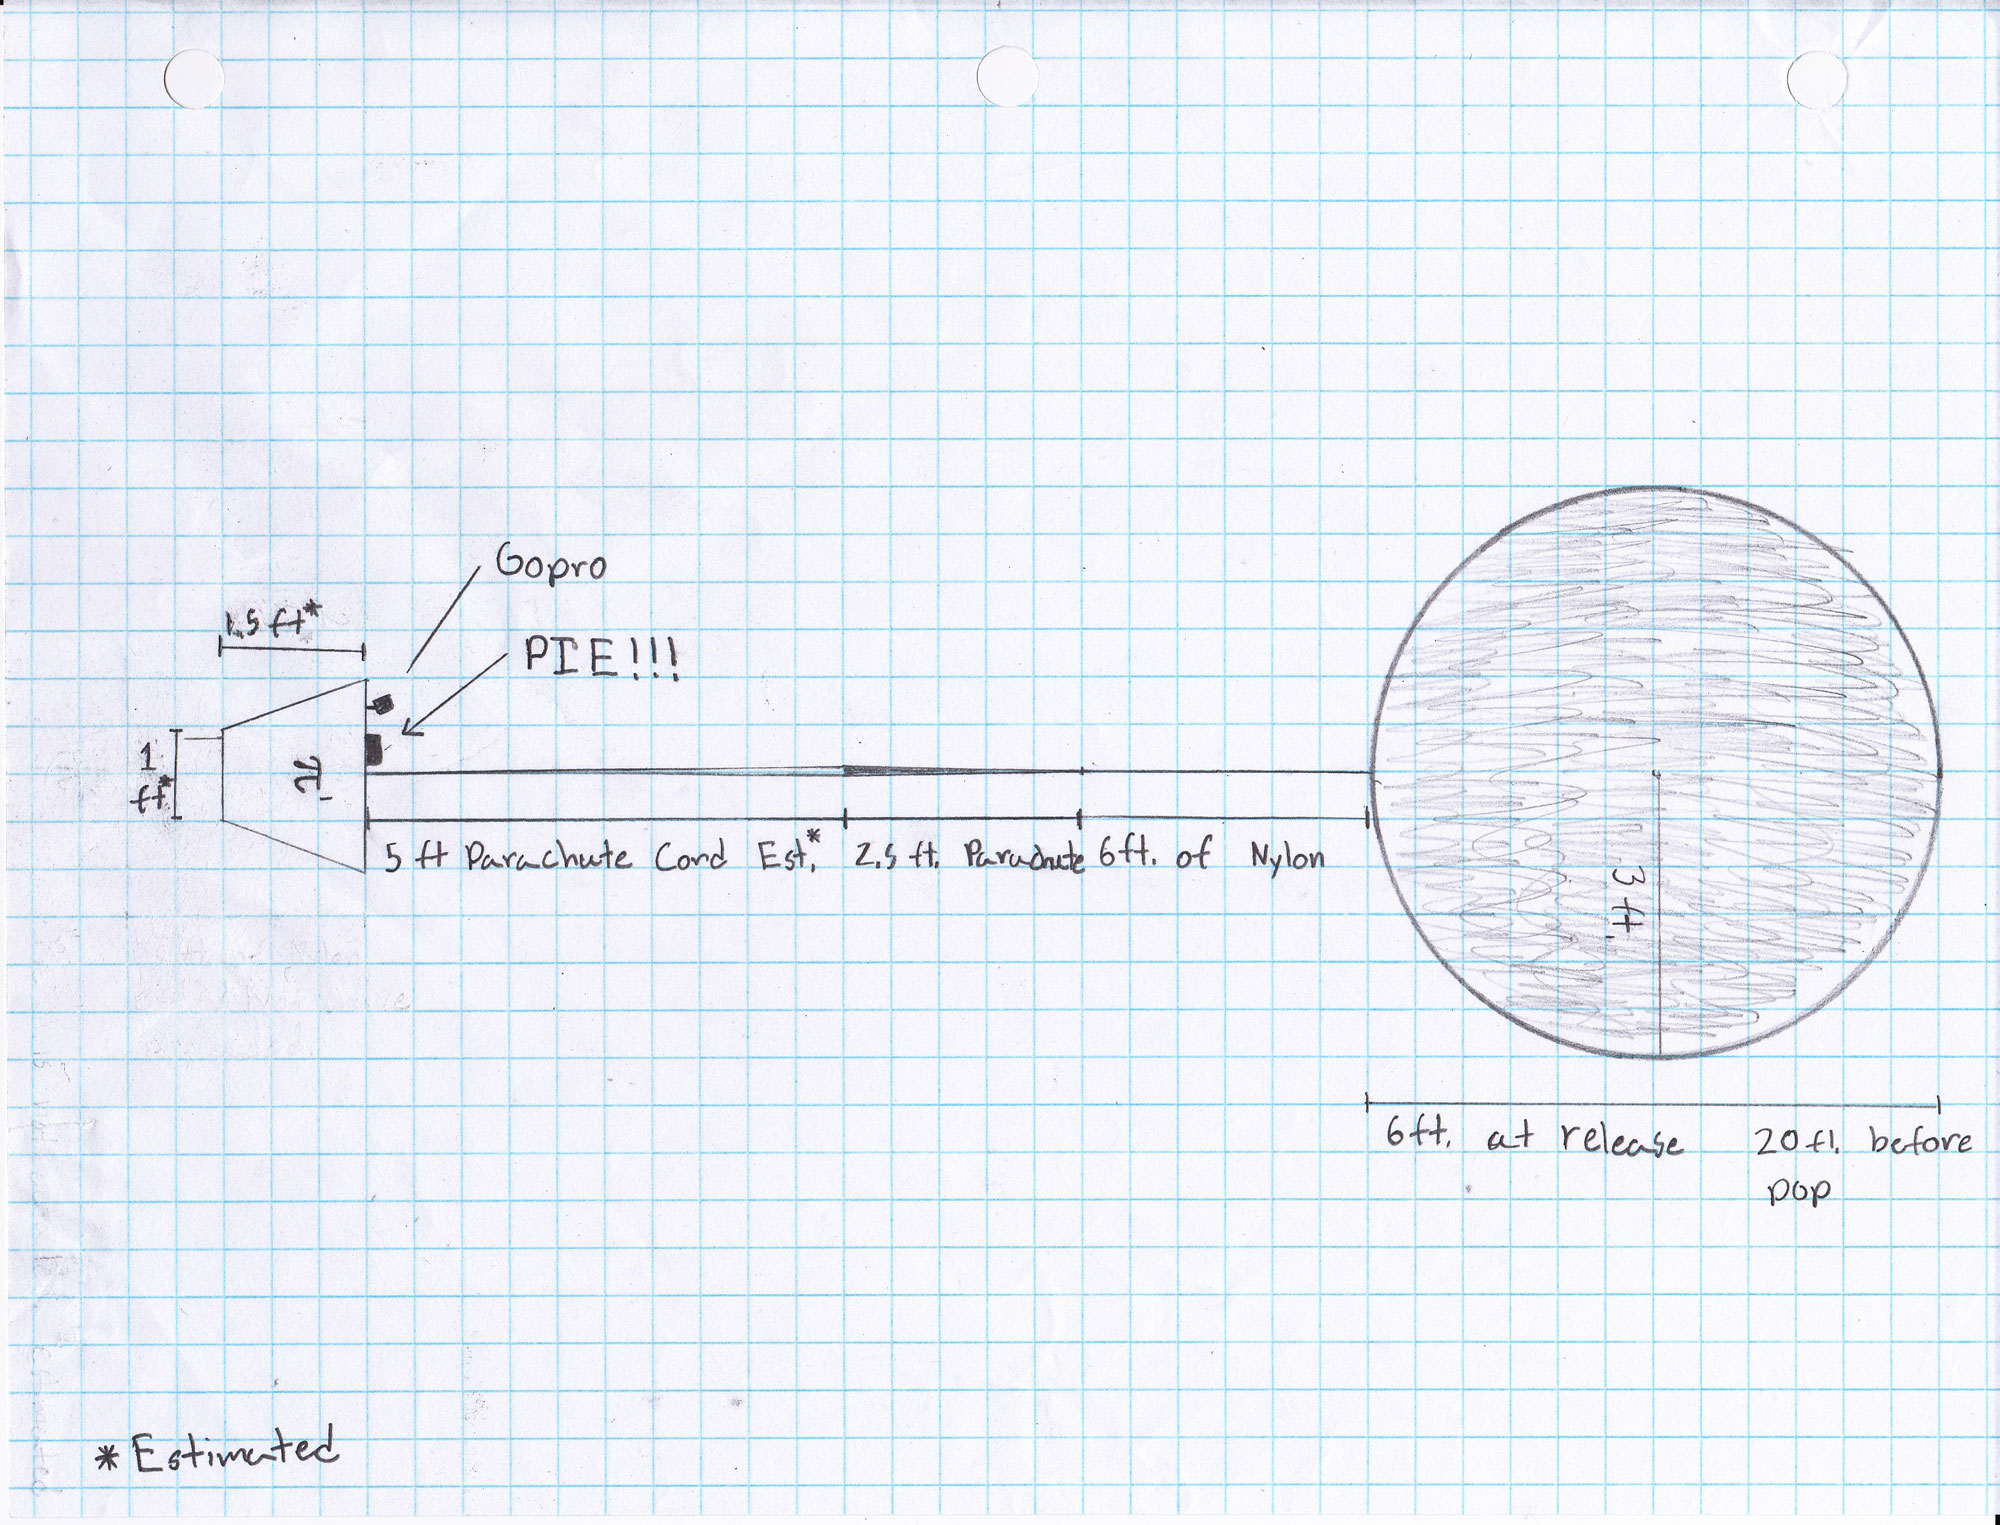 Gopro
1.5 ft*
PIE!!!
1
ft*
5 ft Parachute Cord Est.* 2.5 ft. Parachute 6ft. of Nylon
3 ft.
6ft. at release 20ft. before
pop
* Estimated